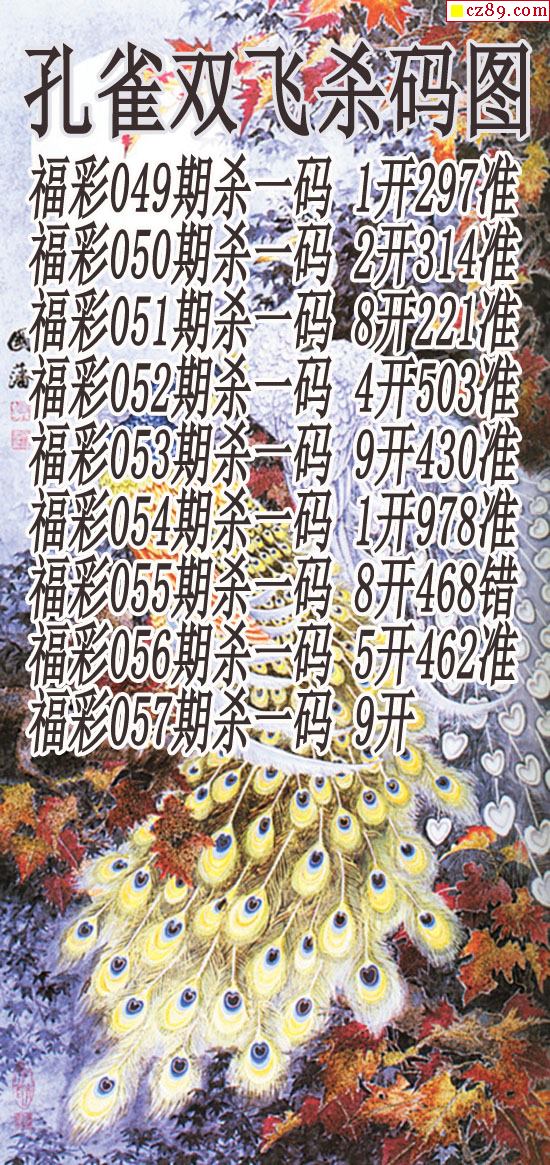 cz89.com
孔雀双飞杀码图
福彩049期杀一码 1开297准
福彩050期杀一码 2开314准
福彩051期杀一码 8开221准
福彩052期杀一码 4开503准
福彩053期杀一码 9开430准
福彩054期杀一码 1开978准
福彩055期杀一码 8开468错
福彩056期杀一码 5开462准
福彩057期杀一码 9开